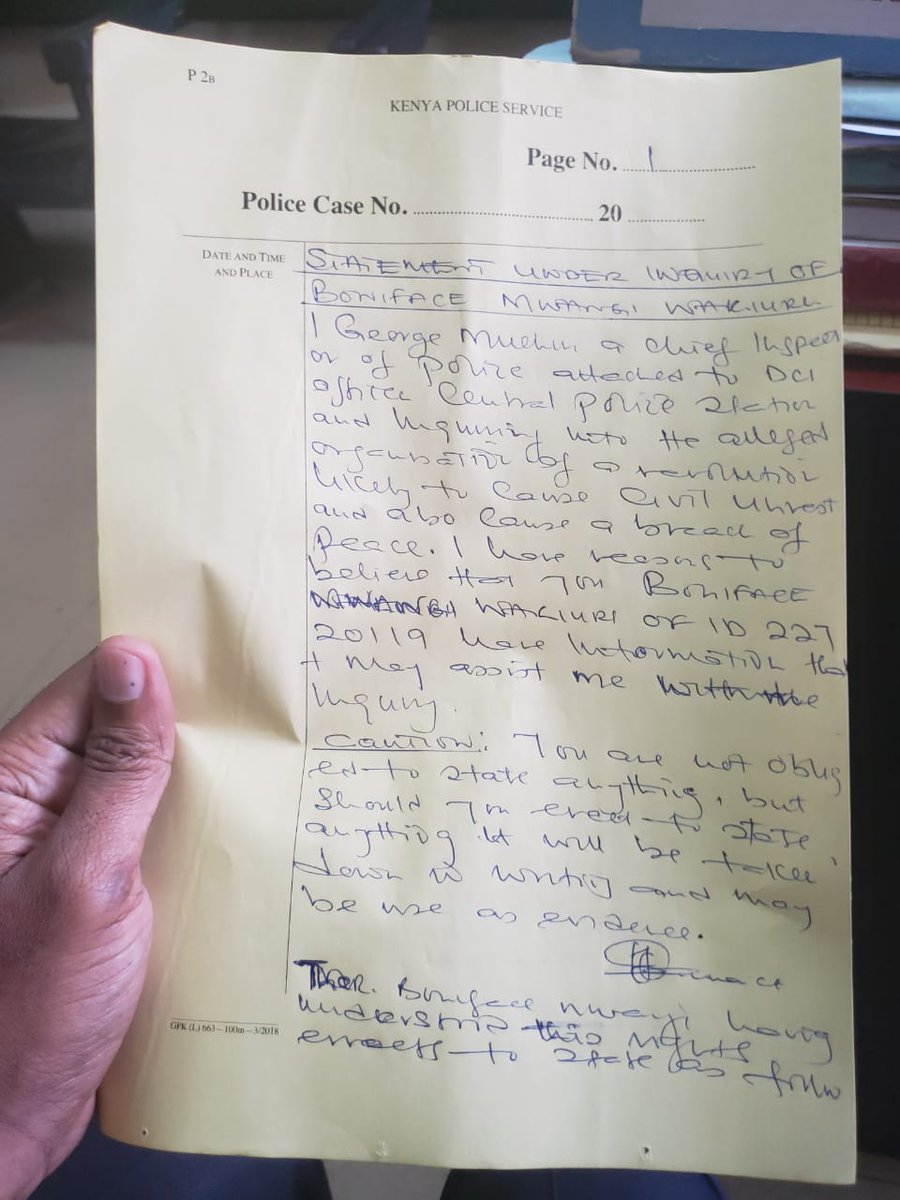 P 2B
KENYA POLICE SERVICE
Page No. 1
Police Case No. 20
DATE AND TIME
AND PLACE
STATEMENT UNDER INQUIRY OF
BONIFACE MWANGI WAKIURU
I George Muchiri a chief Inspect
or of police attached to DCI
office Central police station
and inquiring into the alleged
organisation of a revolution
likely to cause civil unrest
and also cause a breach of
peace. I have reasons to
believe that you BONIFACE
MWANGI WAKIURI OF ID 227
20119 have information tha
t may assist me with the
inquiry.
CAUTION: You are not oblig
ed to state anything, but
should you elect to state
anything it will be taken
down in writing and may
be use as evidence.
Boniface having
this rights
to state as follow
GPK (L) 663 – 100m – 3/2018